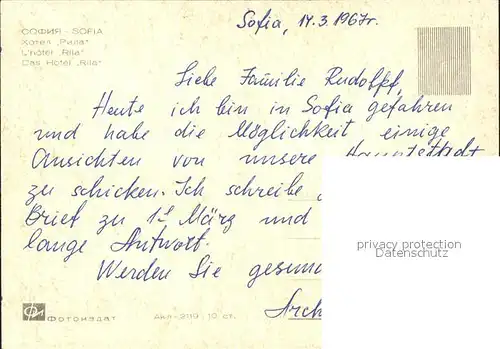 Sofia, 14.3.1967г.
СОФИЯ - SOFIA
Хотел „Рила“
L'hôtel „Rila“
Das Hotel „Rila“
Liebe Familie Rudolpf,
Heute ich bin in Sofia gefahren
und habe die Möglichkeit einige
Ansichten von unsere Hauptstadt
zu schicken. Ich schreibe
Brief zu 1 März und
lange Antwort.
Werden Sie
privacy protection
Datenschutz
Фотоиздат